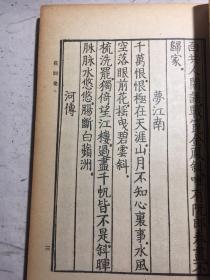 歸家。
夢江南
千萬恨。恨極在天涯。山月不知心裏事。水風
空落眼前花。搖曳碧雲斜。
梳洗罷。獨倚望江樓。過盡千帆皆不是。斜暉
脉脉水悠悠。腸斷白蘋洲。
河傳